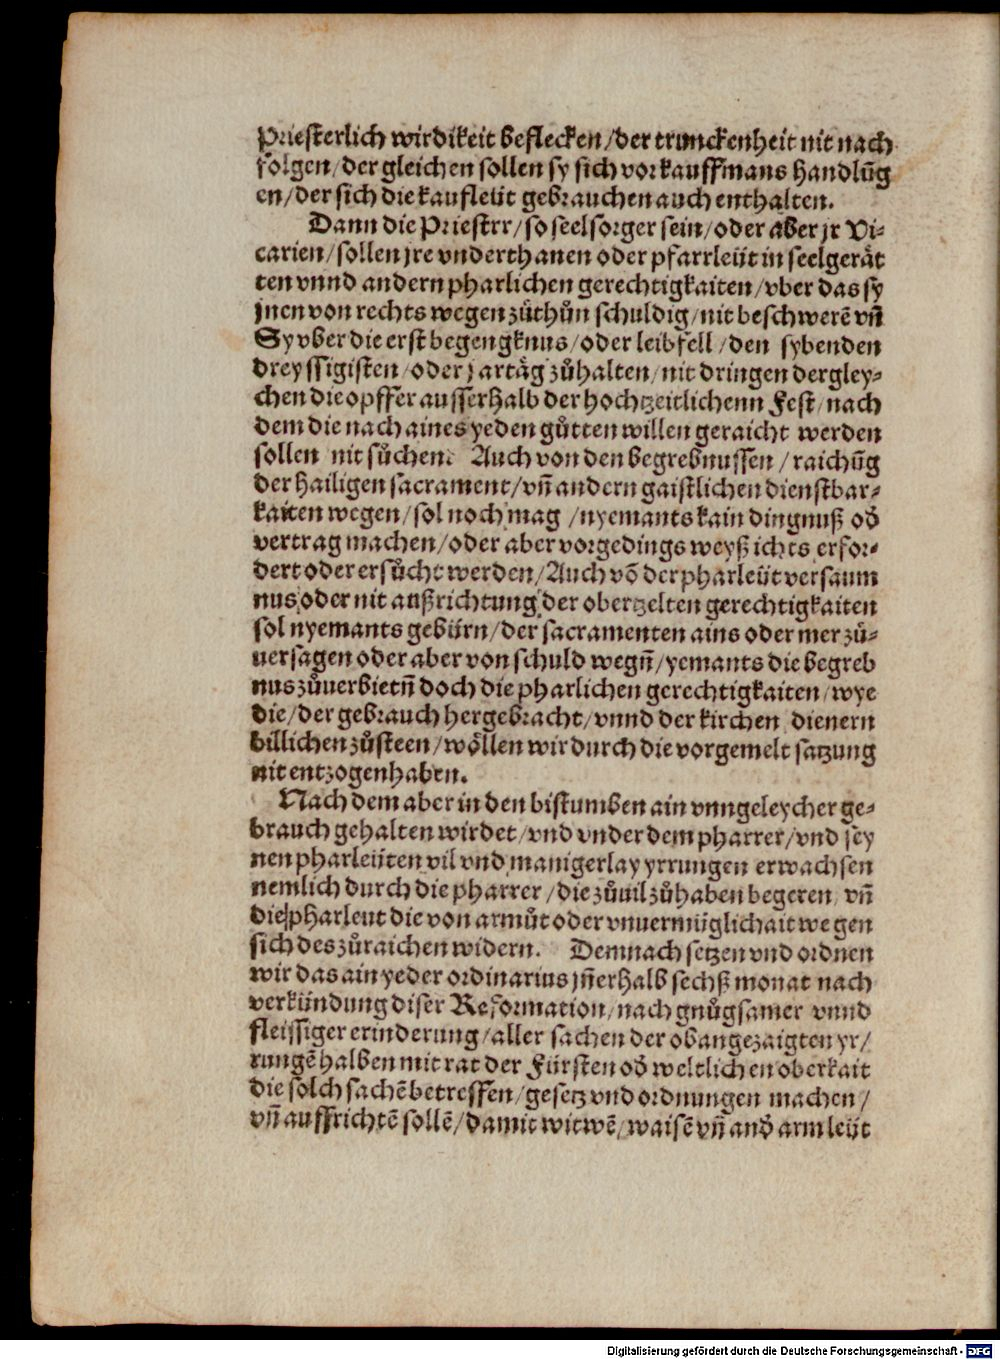 Priesterlich wirdikeit beflecken/der trunckenheit nit nach
folgen/der gleichen sollen sy sich vor kauffmans handlūg
en/der sich die kaufleüt gebrauchen auch enthalten.
Dann die Priestrr/so seelsorger sein/oder aber jr Vi-
carien/sollen jre vnderthanen oder pfarrleüt in seelgerāt
ten vnnd andern pharlichen gerechtigkaiten/vber das sy
jnen von rechts wegen zůthůn schuldig/nit beschwerē vñ
Sy vber die erst begengknus/oder leibfell/den sybenden
dreyssigisten/oder jartåg zůhalten/nit dringen dergley-
chen die opffer ausserhalb der hochtzeitlichenn Fest/nach
dem die nach aines yeden gůtten willen geraicht werden
sollen nit sůchen. Auch von den begrebnussen/raichūg
der hailigen sacrament/vñ andern gaistlichen dienstbar-
kaiten wegen/sol noch mag/nyemants kain dingnuß od̕
vertrag machen/oder aber vorgedings weyß ichts erfor-
dert oder ersůcht werden/Auch võ der pharleüt versaum
nus oder nit außrichtung der obertzelten gerechtigkaiten
sol nyemants gebürn/der sacramenten ains oder mer zů-
uersagen oder aber von schuld wegñ/yemants die begreb
nus zůuerbietñ doch die pharlichen gerechtigkaiten/wye
die/der gebrauch hergebracht/vnnd der kirchen dienern
billichen zůsteen/wöllen wir durch die vorgemelt satzung
nit entzogen haben.
Nach dem aber in den bistumben ain vnngeleycher ge-
brauch gehalten wirdet/vnd vnder dem pharrer/vnd sey
nen pharleüten vil vnd manigerlay yrrungen erwachsen
nemlich durch die pharrer/die zůuil zůhaben begeren/vñ
die pharleut die von armůt oder vnuermüglichait wegen
sich des zůraichen widern. Demnach setzen vnd ordnen
wir das ain yeder ordinarius jñerhalb sechß monat nach
verkündung diser Reformation/nach gnůgsamer vnnd
fleissiger erinderung/aller sachen der obangezaigten yr/
rungē halben mit rat der Fürsten od̕ weltlichen oberkait
die solch sachē betreffen/gesetz vnd ordnungen machen/
vñ auffrichtē sollē/damit witwē/waisē vñ and̕ arm leüt
Digitalisierung gefördert durch die Deutsche Forschungsgemeinschaft - DFG